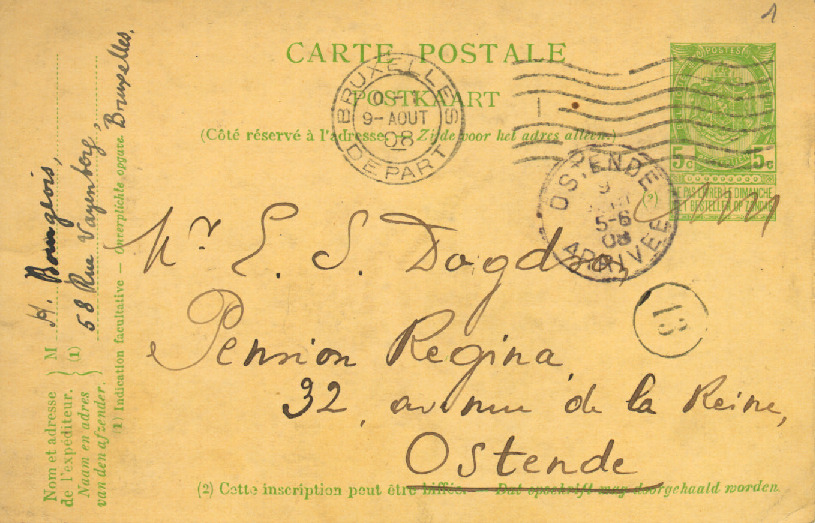 1
CARTE POSTALE
POSTKAART
(Côté réservé à l'adresse. Zijde voor het adres alleen.)
BRUXELLES
9-AOUT
08
DEPART
POSTES
5c 5c
NE PAS LIVRER LE DIMANCHE
NIET BESTELLEN OP ZONDAG
(2)
OSTENDE
9
5-6
08
ARRIVÉE
Mr E. S. Dodgson,
Pension Regina
32, avenue de la Reine,
Ostende
13
(2) Cette inscription peut être biffée. — Dat opschrift mag doorgehaald worden.
Nom et adresse
de l'expéditeur.
Naam en adres
van den afzender.
M H. Bourgeois,
(1) 58 Rue Vayenberg, Bruxelles.
1) Indication facultative — Onverplichte opgave